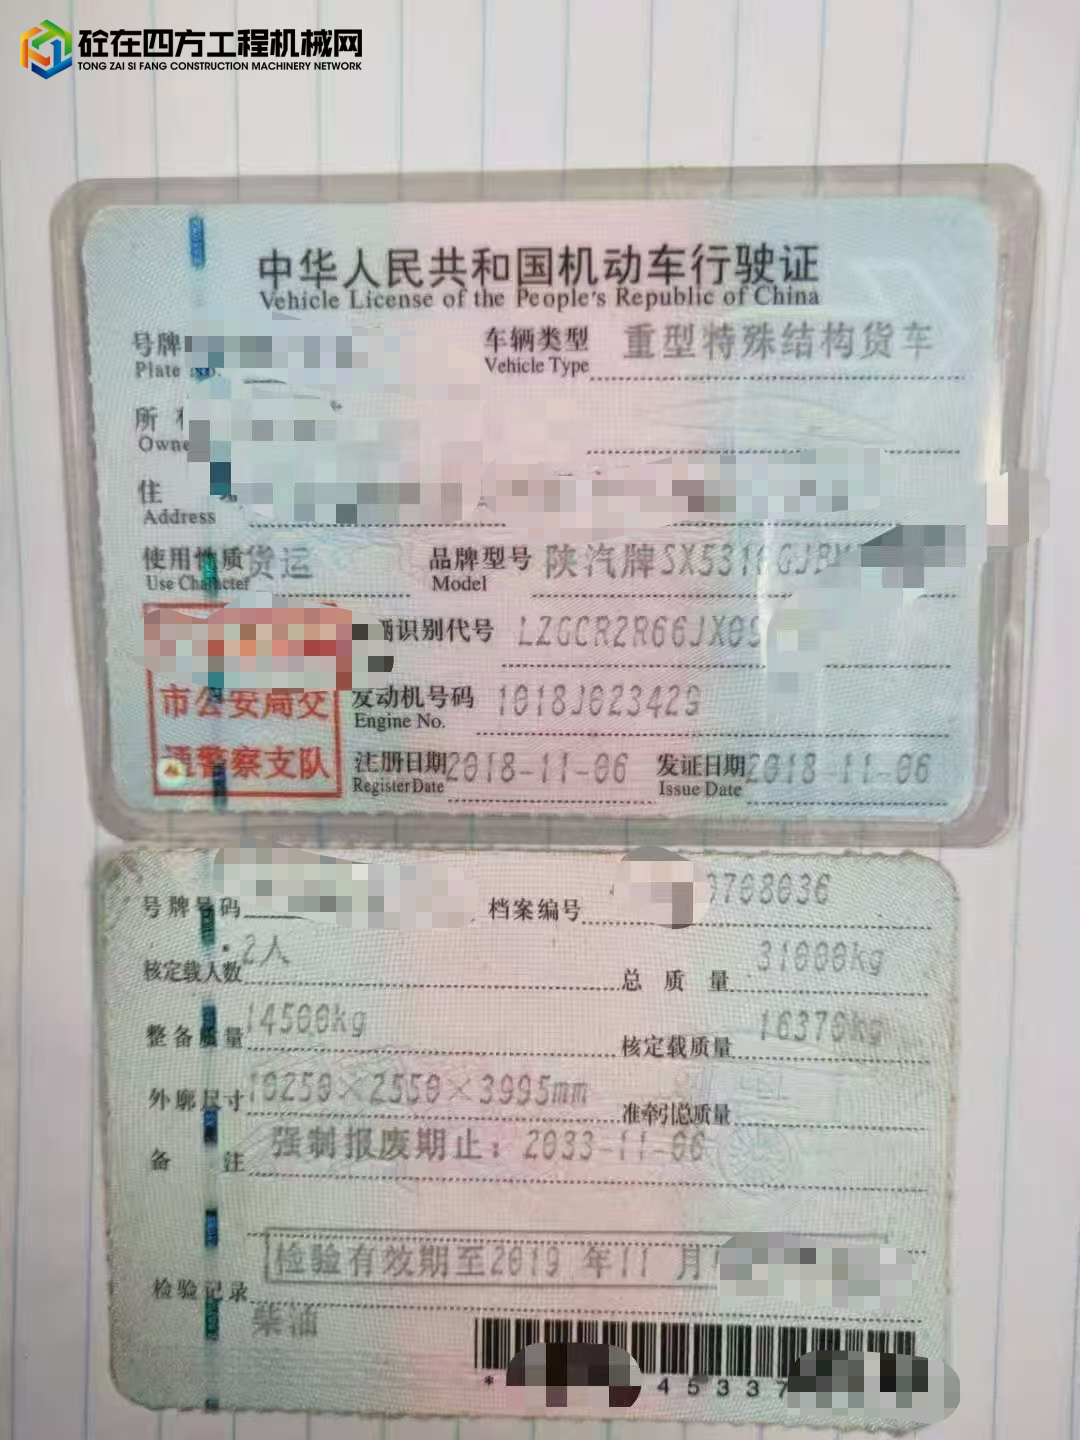 砼在四方工程机械网
TONG ZAI SI FANG CONSTRUCTION MACHINERY NETWORK
中华人民共和国机动车行驶证
Vehicle License of the People's Republic of China
号牌 车辆类型 重型特殊结构货车
Plate No. Vehicle Type
所
Owne
住
Address
使用性质 货运 品牌型号 陕汽牌SX5316GJB
Use Character Model
识别代号 LZGCR2R66JX09
市公安局交 发动机号码 1018J023429
Engine No.
通警察支队 注册日期 2018-11-06 发证日期 2018-11-06
Register Date Issue Date
号牌号码 档案编号 0708036
核定载人数 2人 总质量 31000kg
整备质量 14500kg 核定载质量 16370kg
外廓尺寸 10250×2550×3995mm 准牵引总质量
备注 强制报废期止：2033-11-06
检验记录 检验有效期至2019年11月
柴油
* 45337